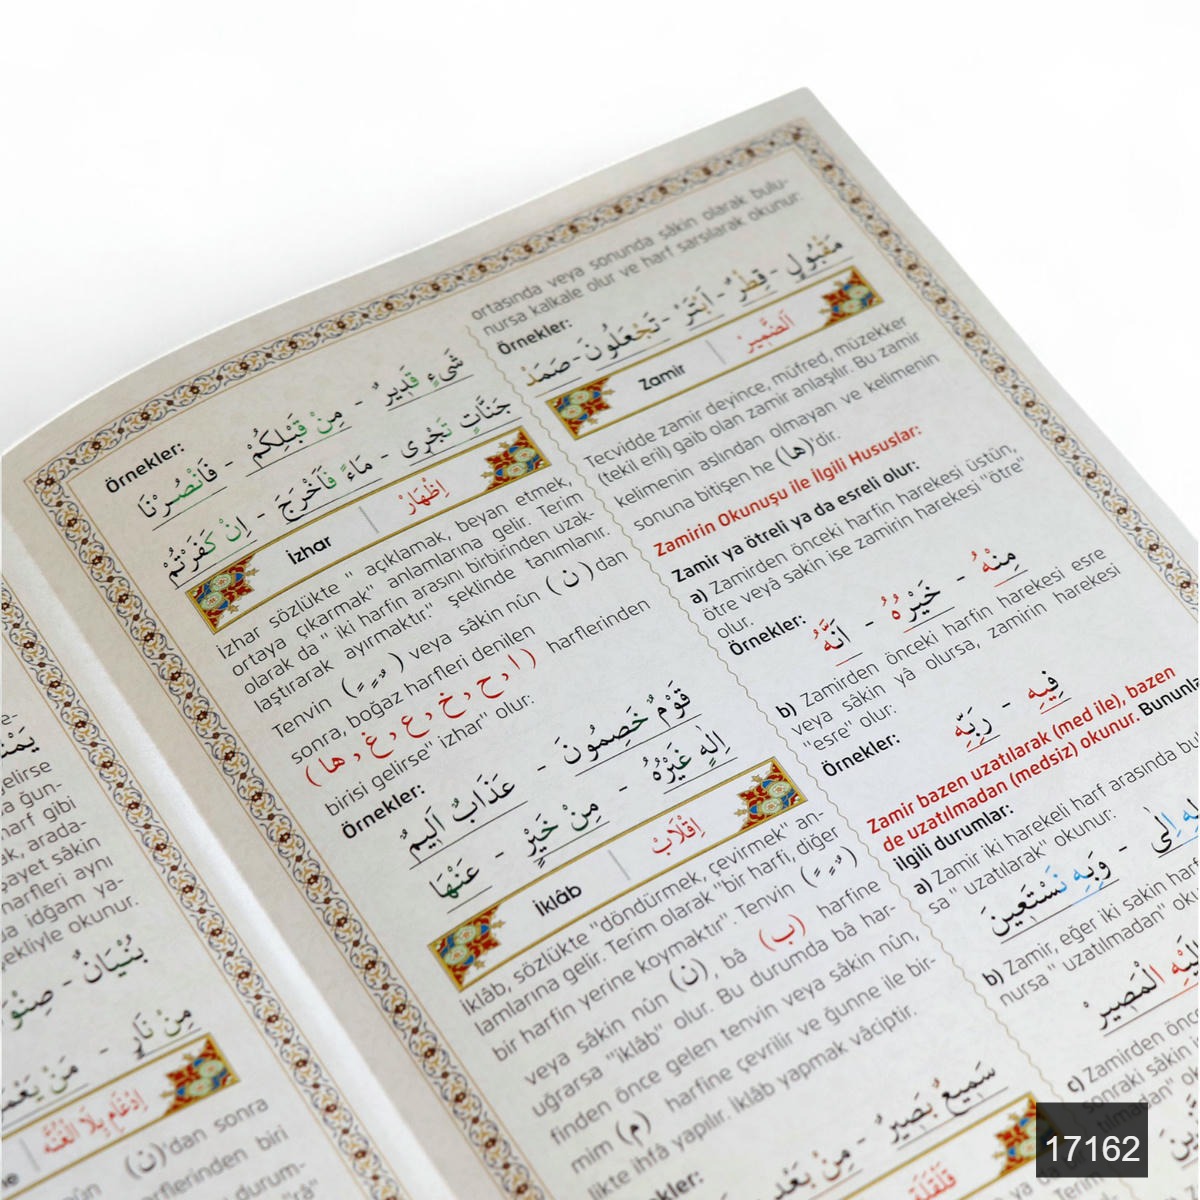 elirse
harf gibi
ak, arada-
şayet sâkin
harfleri aynı
idğam ya-
ekliyle okunur.
بُنْيَانٌ -
مِنْ نَارٍ -
اِدْغَامِ بِلَا الْغُنَّه
(ن)'dan sonra
erflerinden biri
durum-
Örnekler:
شَىْءٍ قَدِيرٌ - مِنْ قَبْلِكُمْ - فَانْصُرْنَا
جَنَّاتٍ تَجْرِى - مَاءً فَاَخْرَجَ - اِنْ كَفَرْتُمْ
İzhar
اِظْهَارْ
İzhar sözlükte " açıklamak, beyan etmek,
ortaya çıkarmak" anlamlarına gelir. Terim
olarak da " iki harfin arasını birbirinden uzak-
laştırarak ayırmaktır." şeklinde tanımlanır.
Tenvin (ـًـٍـٌ) veya sâkin nûn (ن)dan
sonra, boğaz harfleri denilen
(ا ، ح ، خ ، ع ، غ ، ها) harflerinden
birisi gelirse" izhar" olur:
Örnekler:
قَوْمٌ خَصِمُونَ - عَذَابٌ اَلِيمٌ
اِلٰهٍ غَيْرُهُ - مِنْ خَيْرٍ - عَنْهَا
İklâb
اِقْلَابْ
İklâb, sözlükte "döndürmek, çevirmek' an-
lamlarına gelir. Terim olarak "bir harfi, diğer
bir harfin yerine koymaktır". Tenvin (ـًـٍـٌ)
veya sâkin nûn (ن), bâ (ب) harfine
uğrarsa "iklâb" olur. Bu durumda bâ har-
finden önce gelen tenvin veya sâkin nûn,
mim (م) harfine çevrilir ve ğunne ile bir-
likte ihfâ yapılır. İklâb yapmak vâciptir.
Örnekler:
سَمِيعٌ بَصِيرٌ - مِنْ بَعْدِ
قَلْقَلَه
ortasında veya sonunda sâkin olarak bulu-
nursa kalkale olur ve harf sarsılarak okunur.
Örnekler:
مَقْبُولٍ - قِطْرٌ - اَبْتَرْ - تَجْعَلُونَ - صَمَدْ
Zamir
اَلضَّمِيرْ
Tecvidde zamir deyince, müfred, müzekker
(tekil eril) gaib olan zamir anlaşılır. Bu zamir
kelimenin aslından olmayan ve kelimenin
sonuna bitişen he (ها)'dir.
Zamirin Okunuşu ile İlgili Hususlar:
Zamir ya ötreli ya da esreli olur:
a) Zamirden önceki harfin harekesi üstün,
ötre veyâ sakin ise zamirin harekesi "ötre"
olur.
Örnekler:
مِنْهُ - خَيْرُهُ - اَنَّهُ
b) Zamirden önceki harfin harekesi esre
veya sâkin yâ olursa, zamirin harekesi
"esre" olur:
Örnekler:
فِيهِ - رَبِّهِ
Zamir bazen uzatılarak (med ile), bazen
de uzatılmadan (medsiz) okunur. Bununla
ilgili durumlar:
a) Zamir iki harekeli harf arasında bu
sa " uzatılarak" okunur:
اِلٰى - وَبِهِ نَسْتَعِينَ
b) Zamir, eğer iki sakin harf
nursa " uzatılmadan" ok
الْمَصِيرْ
c) Zamirden önce
sonraki sâkin
tılmadan" ok
17162